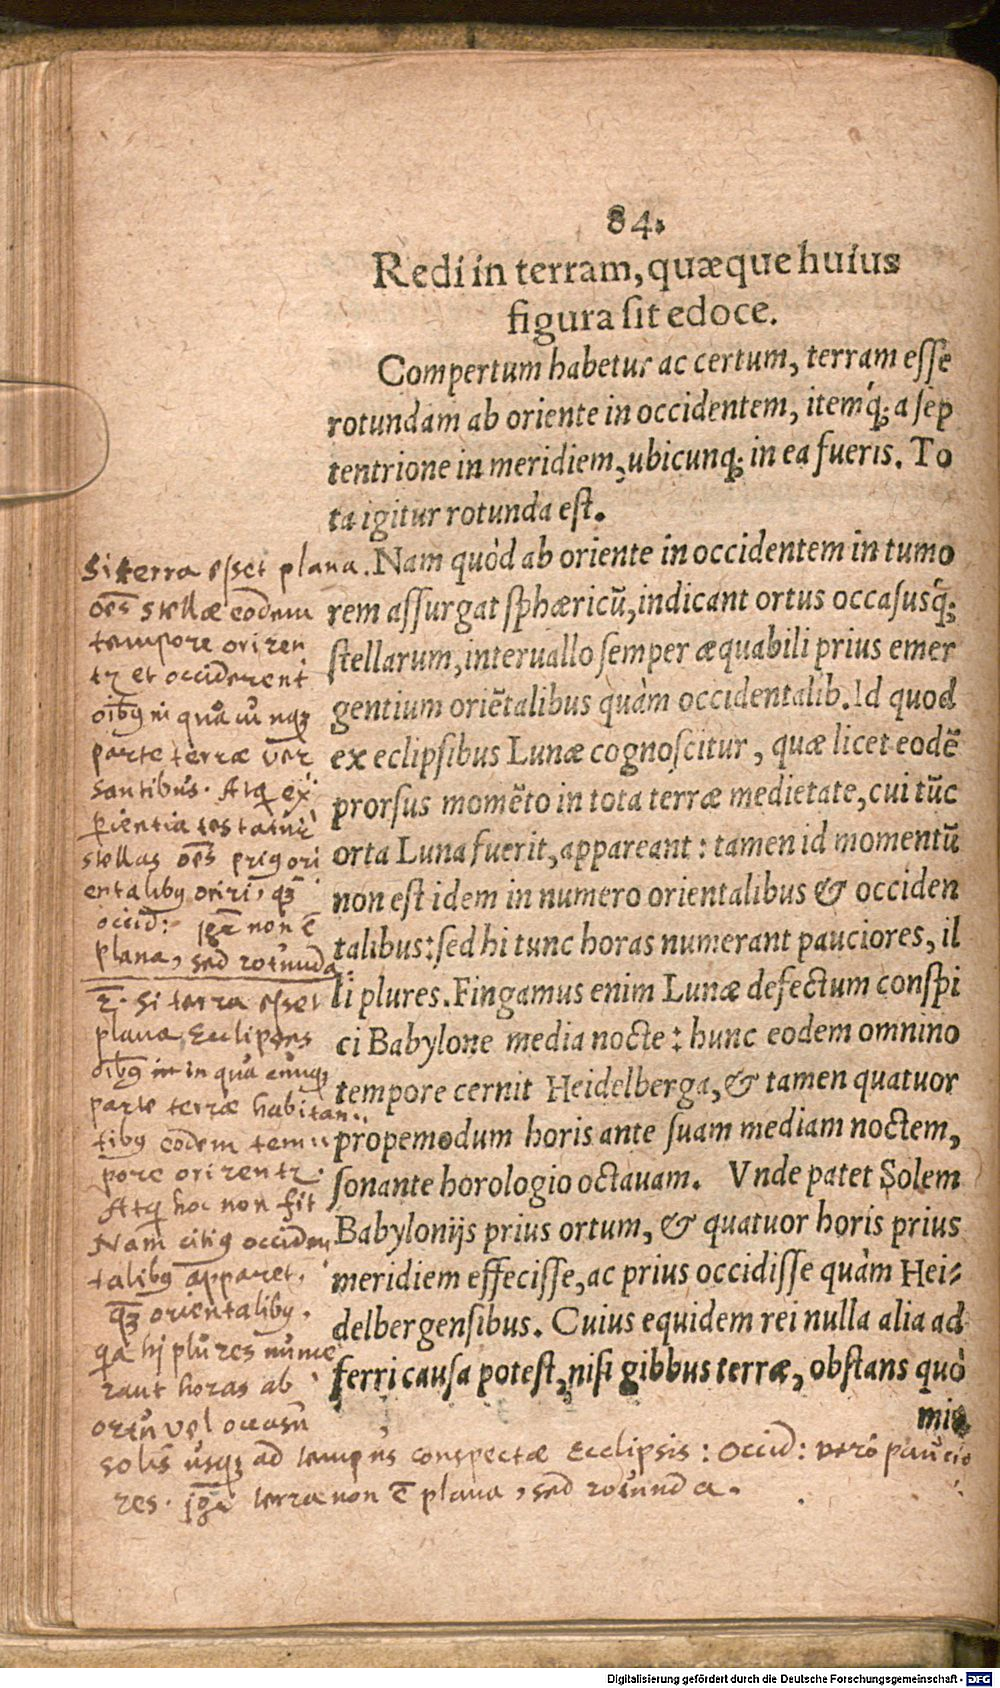 84.
Redi in terram, quæque huius
figura sit edoce.
Compertum habetur ac certum, terram esse
rotundam ab oriente in occidentem, itemq́; a sep
tentrione in meridiem, ubicunq; in ea fueris. To
ta igitur rotunda est.
Nam quòd ab oriente in occidentem in tumo
rem assurgat sphæricũ, indicant ortus occasusq́;
stellarum, interuallo semper æquabili prius emer
gentium oriẽtalibus quàm occidentalib. Id quod
ex eclipsibus Lunæ cognoscitur, quæ licet eodẽ
prorsus momẽto in tota terræ medietate, cui tũc
orta Luna fuerit, appareant: tamen id momentũ
non est idem in numero orientalibus & occiden
talibus: sed hi tunc horas numerant pauciores, il
li plures. Fingamus enim Lunæ defectum conspi
ci Babylone media nocte: hunc eodem omnino
tempore cernit Heidelberga, & tamen quatuor
propemodum horis ante suam mediam noctem,
sonante horologio octauam. Vnde patet Solem
Babylonijs prius ortum, & quatuor horis prius
meridiem effecisse, ac prius occidisse quàm Hei-
delbergensibus. Cuius equidem rei nulla alia ad
ferri causa potest, nisi gibbus terræ, obstans quò
Si terra esset plana.
oẽs stellæ eodem
tempore oriren
tr et occiderent
parte terræ ver
santibus. Atq ex
perientia testatur
stellas oẽs prius ori
entalibus oriri, qz
occid: non ẽ
plana, sed rotunda.
2. Si terra esset
plana, Ecclipses
oibus in qua cunqz
parte terræ habitan
tibus eodem tem
pore orirentr.
Atq hoc non fit
Nam citius occiden
talibus apparet,
qz orientalibus.
qa hj plures nume
rant horas ab
ortu vel occasu
solis usqz ad tempus conspectæ Ecclipsis: Occid: vero paucio
res. terra non ẽ plana, sed rotunda.
Digitalisierung gefördert durch die Deutsche Forschungsgemeinschaft - DFG